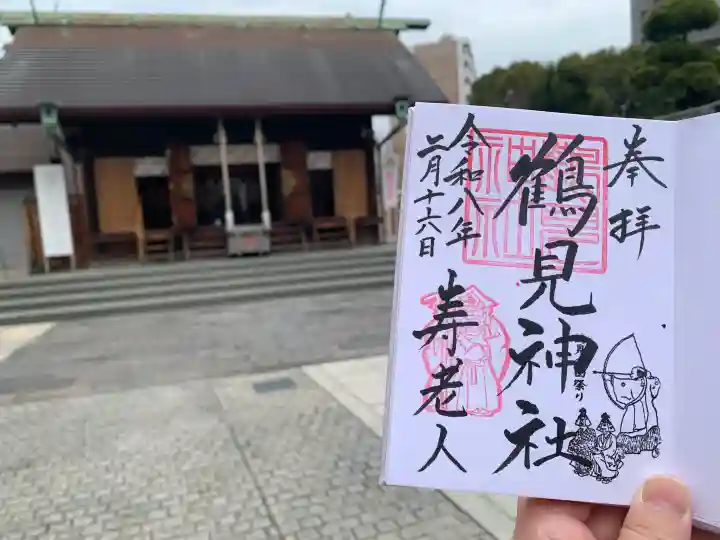 奉拝
鶴見神社
令和八年
二月十六日
寿老人
祭り